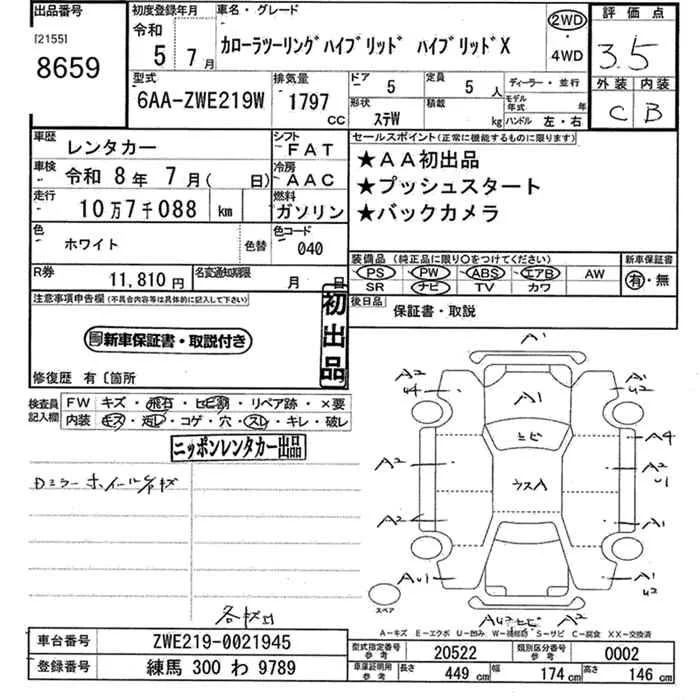 出品番号
[2155]
8659
初度登録年月
令和
5 7月
車名・グレード
カローラツーリングハイブリッド ハイブリッドX
2WD
・
4WD
評価点
3.5
外装 内装
C B
型式
6AA-ZWE219W
排気量
1797
cc
ドア
5
定員
5 人
形状
ステW
積載
kg
ディーラー・並行
モデル年式 年
ハンドル 左・右
車歴
レンタカー
シフト
FAT
車検
令和 8年 7月( 日)
冷房
AAC
走行
10万7千088 km
燃料
ガソリン
色
ホワイト
色替
色コード
040
R券
11,810円
名変通知期限
月 日
セールスポイント(正常に機能するものに限ります)
★AA初出品
★プッシュスタート
★バックカメラ
装備品 (純正品に限り○をつけてください)
PS PW ABS エアB AW
SR ナビ TV カワ
新車保証書
有・無
後日品
保証書・取説
注意事項申告欄(不具合内容等は具体的に記入して下さい)
新車保証書・取説付き
初出品
修復歴 有〔箇所
検査員記入欄
FW キズ・飛石・ヒビ割・リペア跡・×要
内装 キズ・汚レ・コゲ・穴・スレ・キレ・破レ
ニッポンレンタカー出品
Dミラー ホイール
A1
A2
U4
A1
A1
U2
ヒビ
A4
A2
ウスA
A2
U1
A2
A1
AU1
A1
U2
スペア
ヒビ
A2
A-キズ E-エクボ U-凹み W-補修跡 S-サビ C-腐食 XX-交換済
車台番号
ZWE219-0021945
登録番号
練馬 300 わ 9789
型式指定番号
参考
20522
類別区分番号
参考
0002
車庫証明用
参考
長さ
449 cm
幅
174 cm
高さ
146 cm